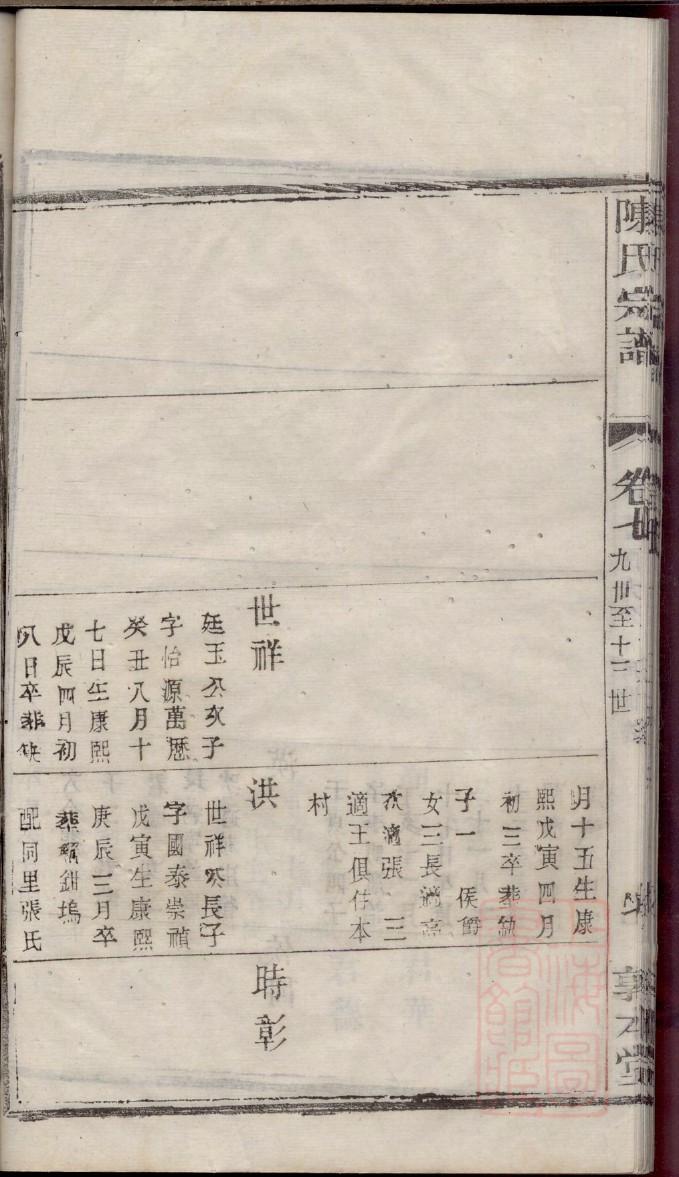 陳氏宗譜
卷七
九世至十三世
敦本堂
世祥
廷玉公次子
字怡源萬歷
癸丑八月十
七日生康熙
戊辰四月初
八日卒葬缺
月十五生康
熙戊寅四月
初三卒葬缺
子一 侯爵
女三長適高
次適張 三
適王俱住本
村
洪
世祥公長子
字國泰崇禎
戊寅生康熙
庚辰三月卒
葬
配同里張氏
時彰